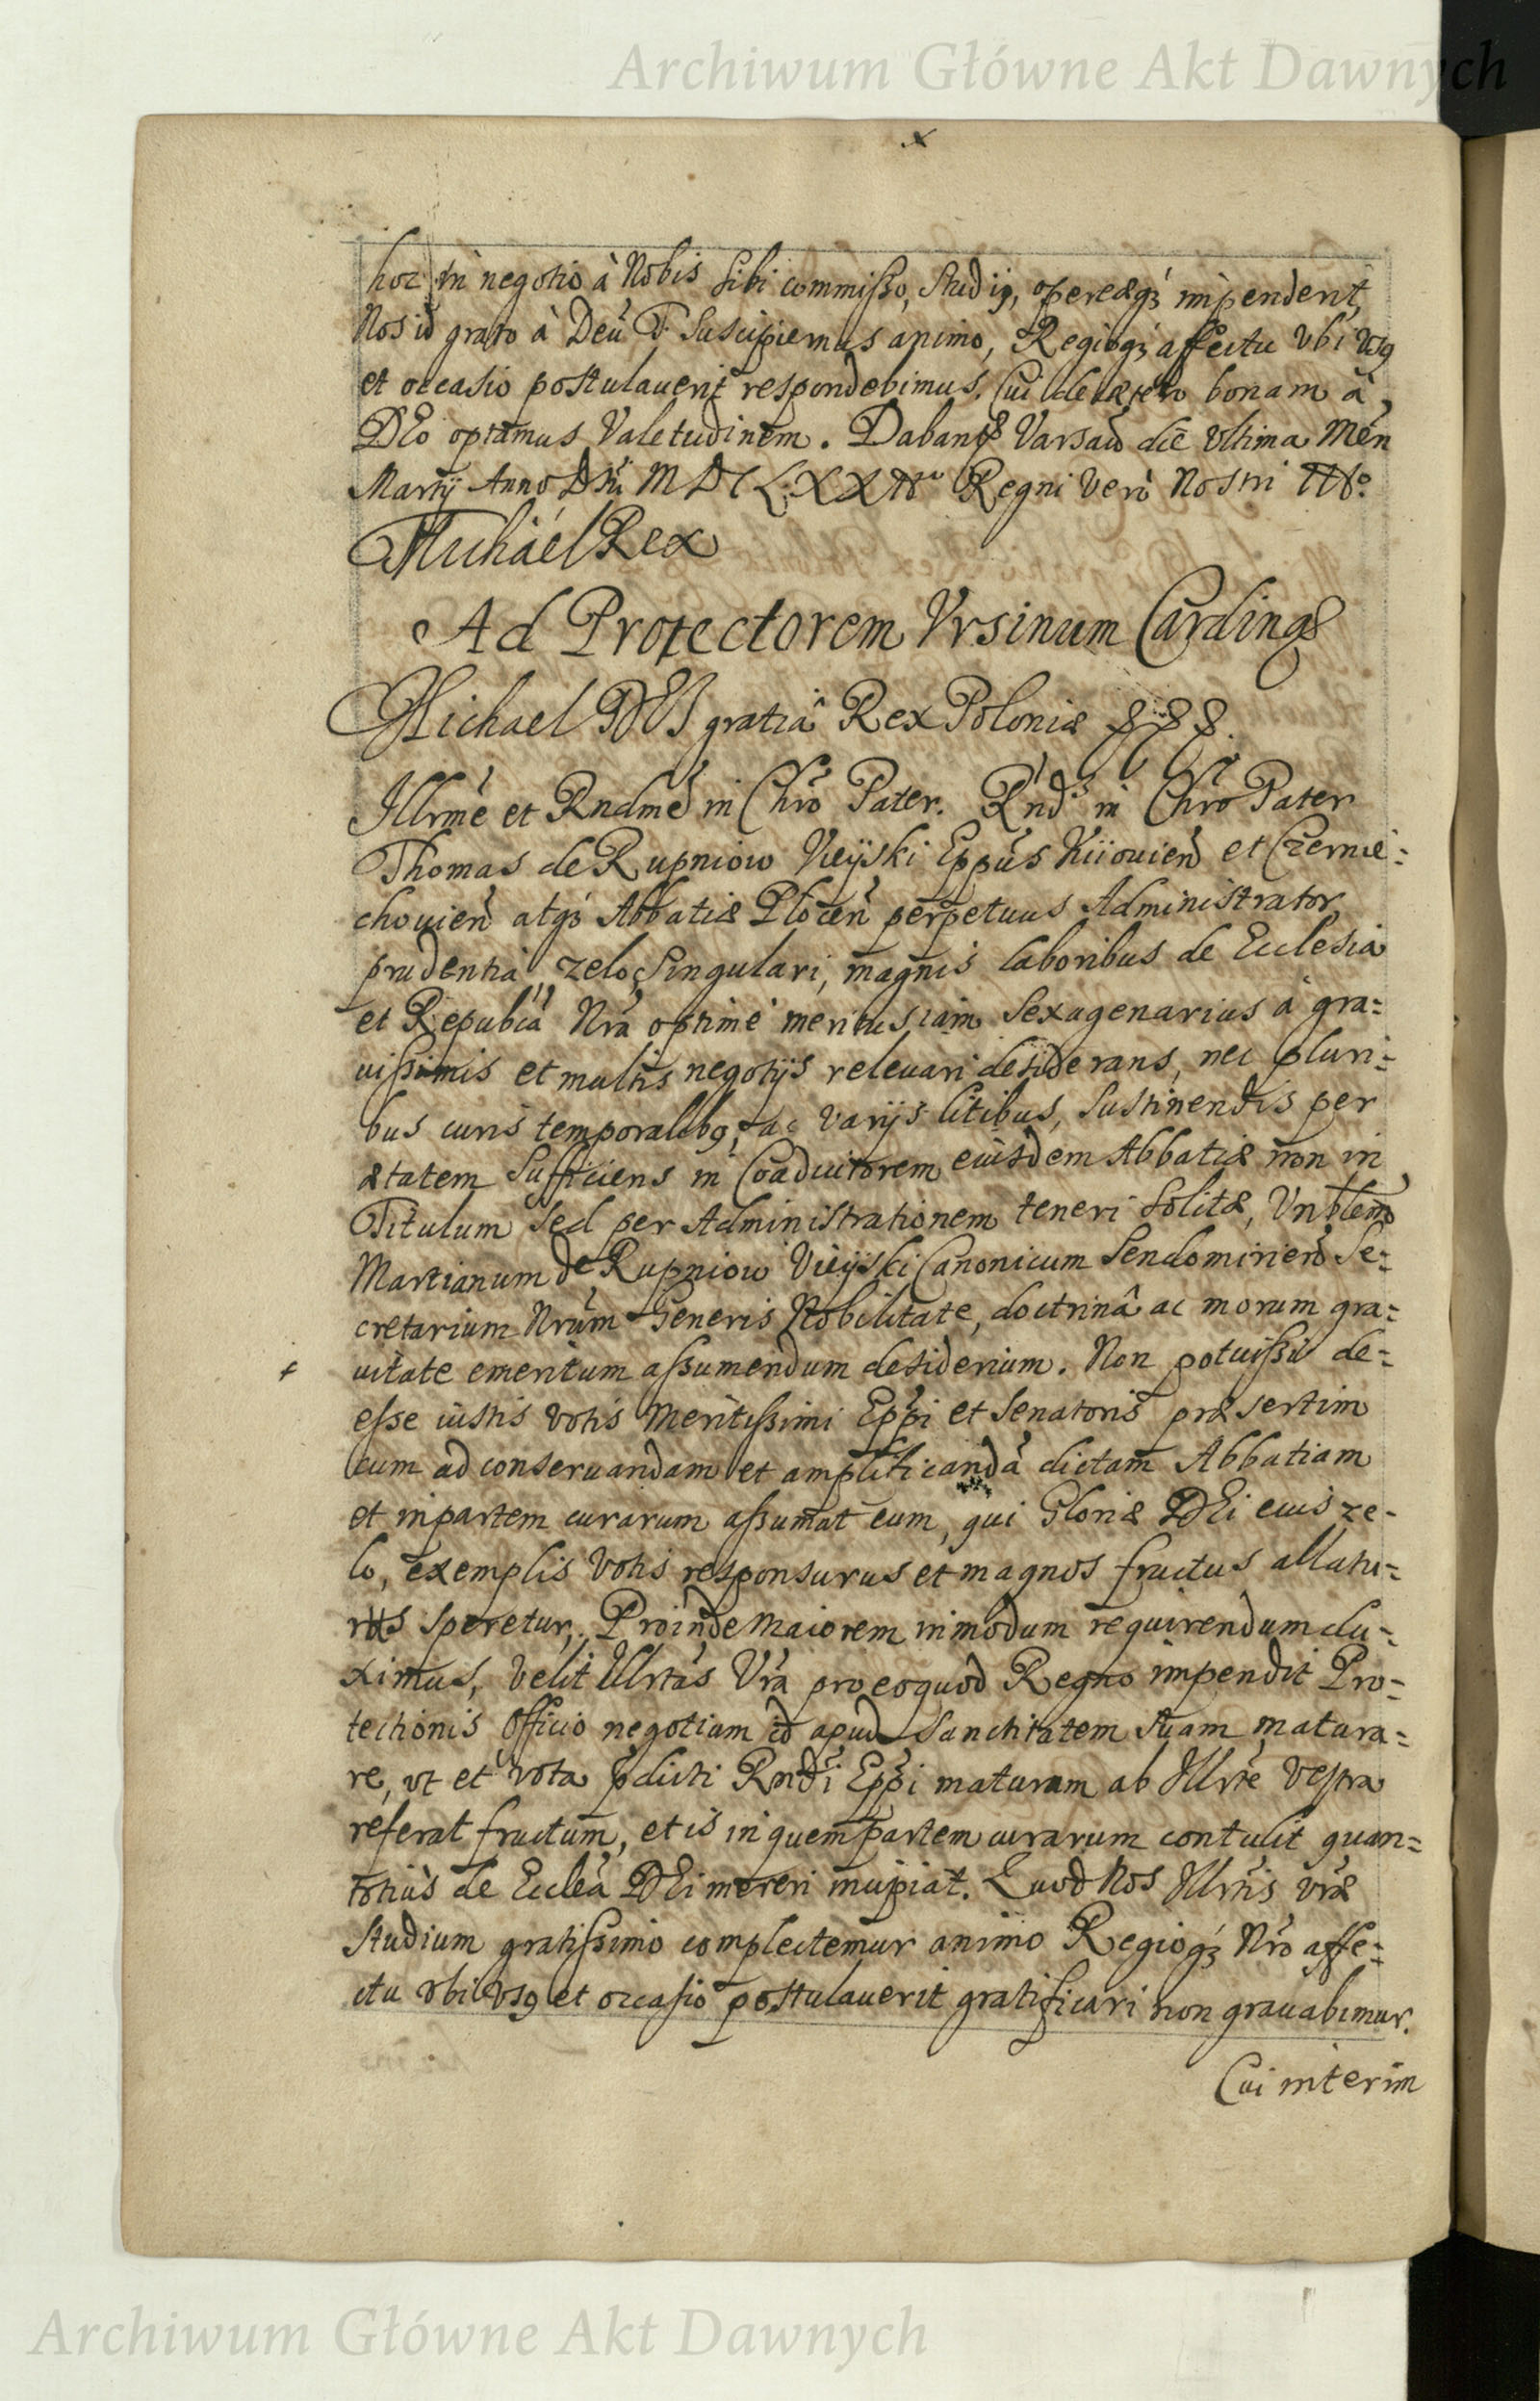 Archiwum Główne Akt Dawnych
hoc in negotio à Nobis sibi commisso, studij, operæq́ꝫ impenderit,
Nos id grato à Deũ F. suscipiemus animo, Regioq́ꝫ affectu ubi usꝰ
et occasio postulaverit respondebimus. Cui de cætero bonam à
DEo optamus Valetudinem. Dabantꝭ Varsaũ die Ultima Men̄
Martij Anno Dn̄i MDCLXX Regni Verò Nostri
Michaél Rex
Ad Protectorem Vrsinum Cardinaꝭ
Michael DEI gratiâ Rex Poloniæ
Illrmẽ et Rndmẽ in Chr̃o Pater. Rnd̃s in Chr̃o Pater
Thomas de Rupniow Vieÿski Epp̃us Kiiouien̄ et Czernie=
chouien̄ atq́ꝫ Abbatiæ Plocen̄ perpetuus Administrator
prudentiâ, zelo, singulari, magnis laboribus de Ecclesia
et Republ̃cã Nrã optimè meritus iam Sexagenarius à gra=
uissimis et multis negotijs releuari desiderans, nec pluri=
bus curis temporalibꝰ, ac varijs litibus, sustinendis per
ætatem sufficiens in Coadiutorem eiusdem Abbatiæ non in
Titulum sed per Administrationem teneri solitæ, Vnblem̃
Martianum de Rupniow Vieÿski Canonicum Sendomirien̄ Se=
cretarium Nrũm Generis Nobilitate, doctrinâ ac morum gra=
uitate emeritum assumendum desiderium. Non potuissũ de=
esse iustis votis meritissimi Epp̃i et Senatoris præsertim
cum ad conseruandam et amplificandã dictam Abbatiam
et in partem curarum assumat eum, qui Gloriæ DEi eius ze-
lo, exemplis Votis responsurus et magnos fructus allatu=
rus speretur, Proinde maiorem inmodum requirendum du=
ximus, velit Illrtãs Vrã pro eo quod Regno impendit Pro=
tectionis Officio negotium id apud Sanctitatem suam matura=
re, ut et vota p̃dicti Rnd̃i Epp̃i maturum ab Illrtẽ Vestra
referat fructum, et is in quem partem curarum contulit quan=
totius de Ecclẽa DEi mereri incipiat. Quod Nos Illrtĩs vrãæ
studium gratissimo complectemur animo Regioq́ꝫ Nrõ affe=
ctu ubi usꝰ et occasio postulaverit gratificari non grauabimur.
Cui interim
Archiwum Główne Akt Dawnych